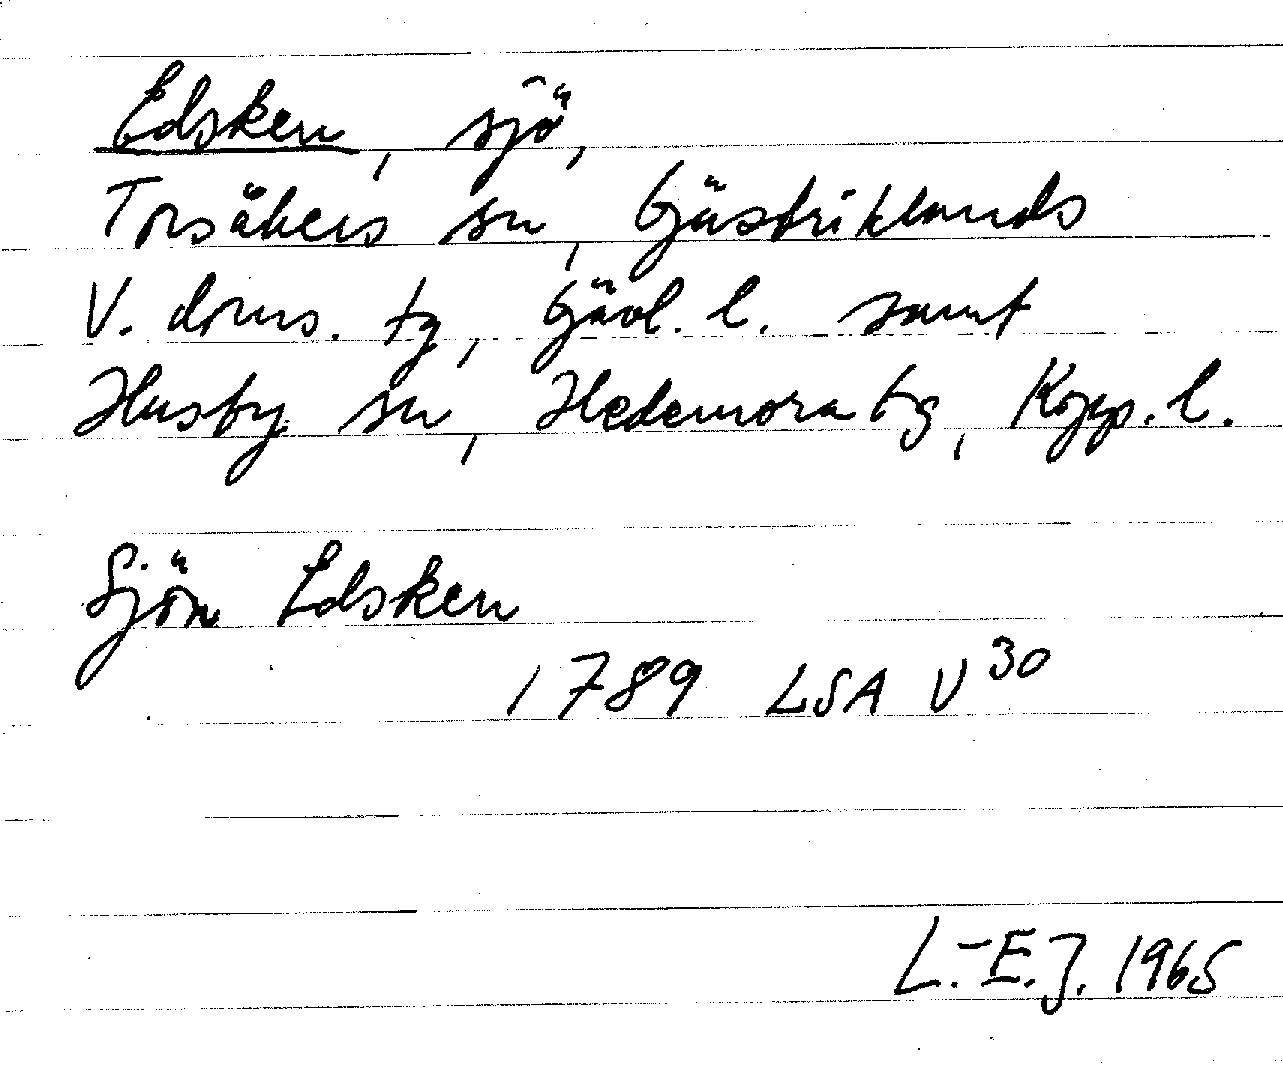 Edsken, sjö,
Torsåkers sn, Gästriklands
V. doms. tg, Gävl. l. samt
Husby sn, Hedemora tg, Kopp. l.
Sjön Edsken
1789 LSA V³⁰
L.-E.J. 1965